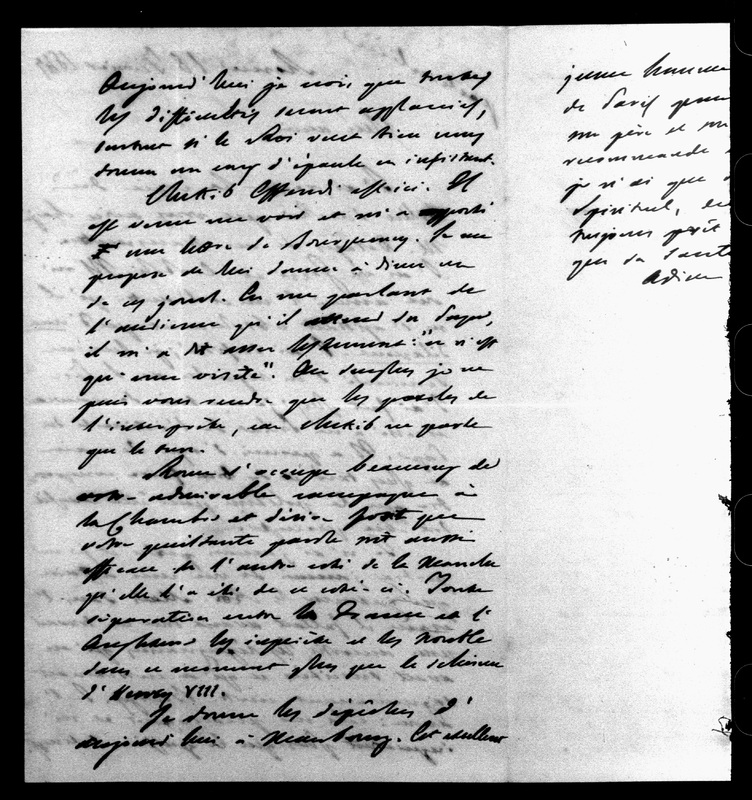 Aujourd'hui je vois que toutes
les difficultés seront applanies,
surtout si le Roi veut bien nous
donner un coup d'épaule en insistant.
Chekib Effendi est ici. Il
est venu me voir et m'a apporté
une lettre de Bourqueney. Je me
propose de lui donner à dîner un
de ces jours. En me parlant de
l'audience qu'il attend du Pape,
il m'a dit assez lestement: "ce n'est
qu'une visite". Au surplus je ne
puis vous rendre que les paroles de
l'interprète, car Chekib ne parle
que le turc.
Rome s'occupe beaucoup de
votre admirable campagne à
la Chambre et désire fort que
votre puissante parole soit aussi
efficace de l'autre coté de la Manche
qu'elle l'a été de ce coté-ci. Toute
séparation entre la France et l'
Angleterre les inquiète et les trouble
dans ce moment plus que le schisme
d'Henry VIII.
Je donne les dépêches d'
aujourd'hui à Maubourg. Cet excellent
jeune homme
de Paris pour
son père et
recommande
je n'ai que
Spirituel,
toujours prêt
que sa santé
Adieu